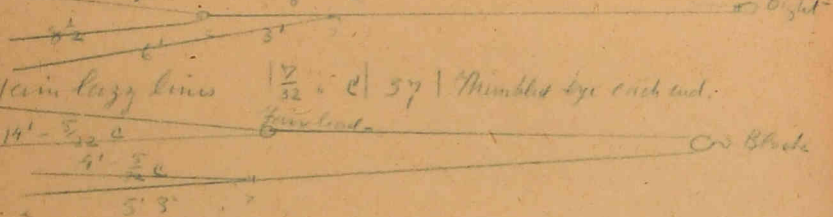 8½
6' 3'
lazy lines | 7/32 " C | 37 | Thimbled eye each end.
14' - 5/32 C Fairlead - Block
4' - 5/32 C
5' 3"